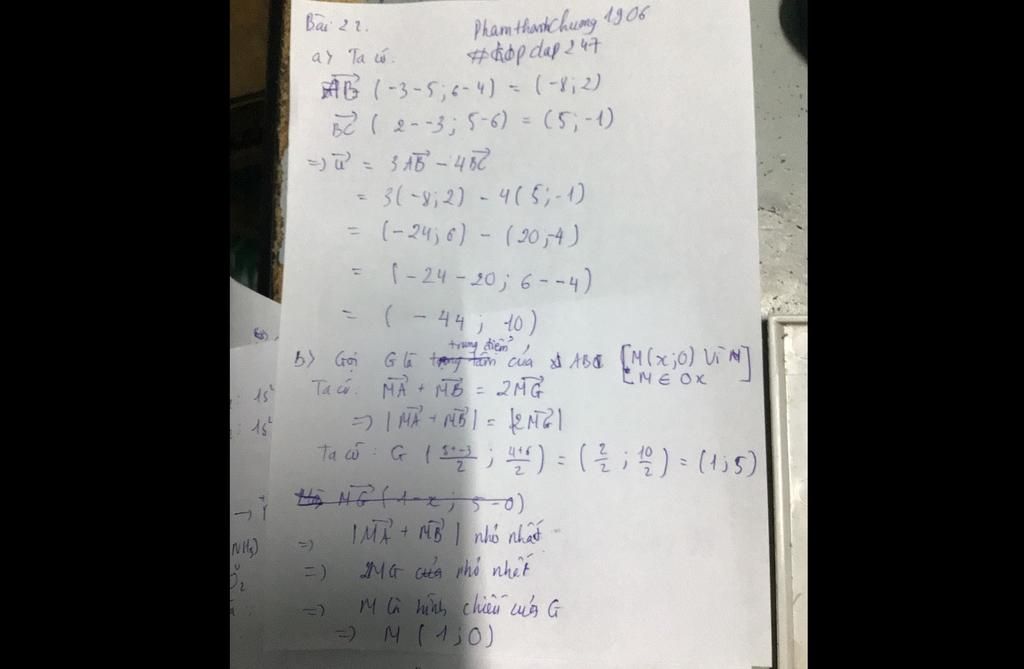 Bài 22.
Phamthanhchuong1906
a) Ta có.
#hopdap247
AB (-3-5; 6-4) = (-8; 2)
BC ( 2--3; 5-6) = (5; -1)
=> u = 3AB - 4BC
= 3(-8; 2) - 4(5; -1)
= (-24; 6) - (20; -4)
= (-24-20; 6--4)
= ( -44; 10)
b) Gọi G là trung điểm của AB [M(x; 0) vì M ∈ Ox]
Ta có: MA + MB = 2MG
=> |MA + MB| = |2MG|
Ta có: G (5+-3/2; 4+6/2) = (2/2; 10/2) = (1; 5)
MG (1-x; 5-0)
=> |MA + MB| nhỏ nhất
=> 2MG nhỏ nhất
=> M là hình chiếu của G
=> M (1; 0)
: 1s²
: 1s²
NH₃)
O₂